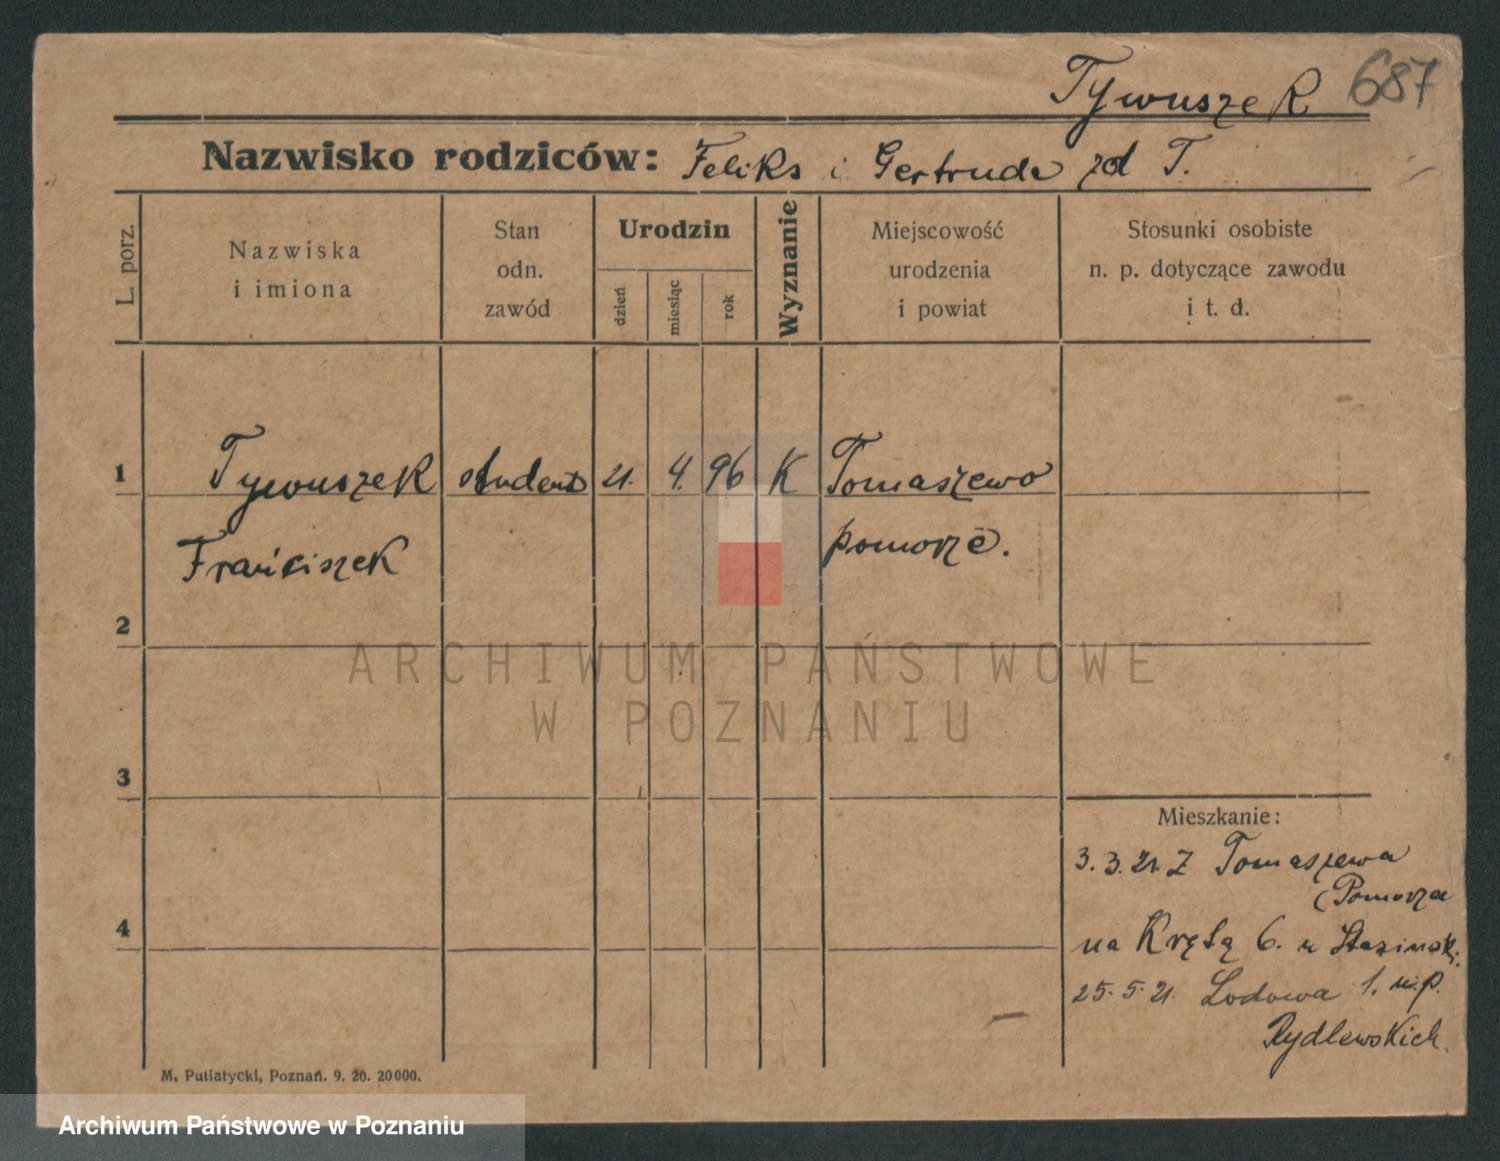 Tywuszek 687
Nazwisko rodziców: Feliks i Gertruda zd T.
L. porz.
Nazwiska
i imiona
Stan
odn.
zawód
Urodzin
dzień
miesiąc
rok
Wyznanie
Miejscowość
urodzenia
i powiat
Stosunki osobiste
n. p. dotyczące zawodu
i t. d.
1 Tywuszek student 21. 4. 96 K Tomaszewo
Franciszek pomorze.
2
3
Mieszkanie:
3.3.21. Z Tomaszewa
(Pomorza
4
na Krętą 6. u
25.5.21. Lodowa 1. u.p.
Rydlewskich.
M. Putiatycki, Poznań. 9. 20. 20000.
ARCHIWUM PAŃSTWOWE
W POZNANIU
Archiwum Państwowe w Poznaniu